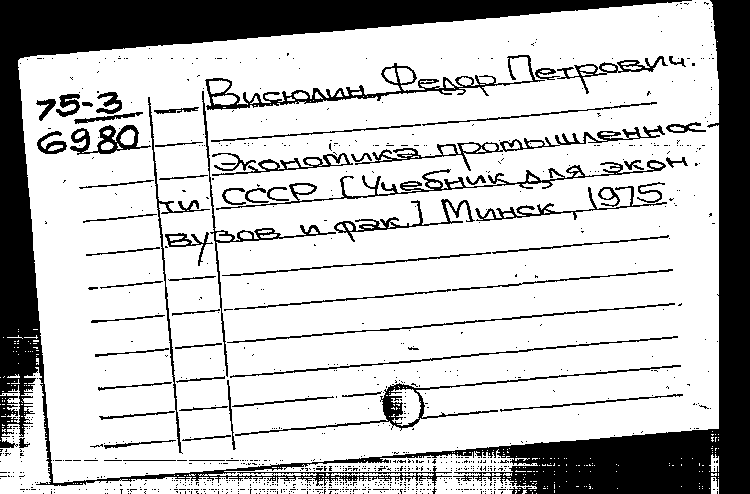 75-3
6980
Висюлин, Федор Петрович.
Экономика промышленнос-
ти СССР [Учебник для экон.
вузов и фак.] Минск, 1975.